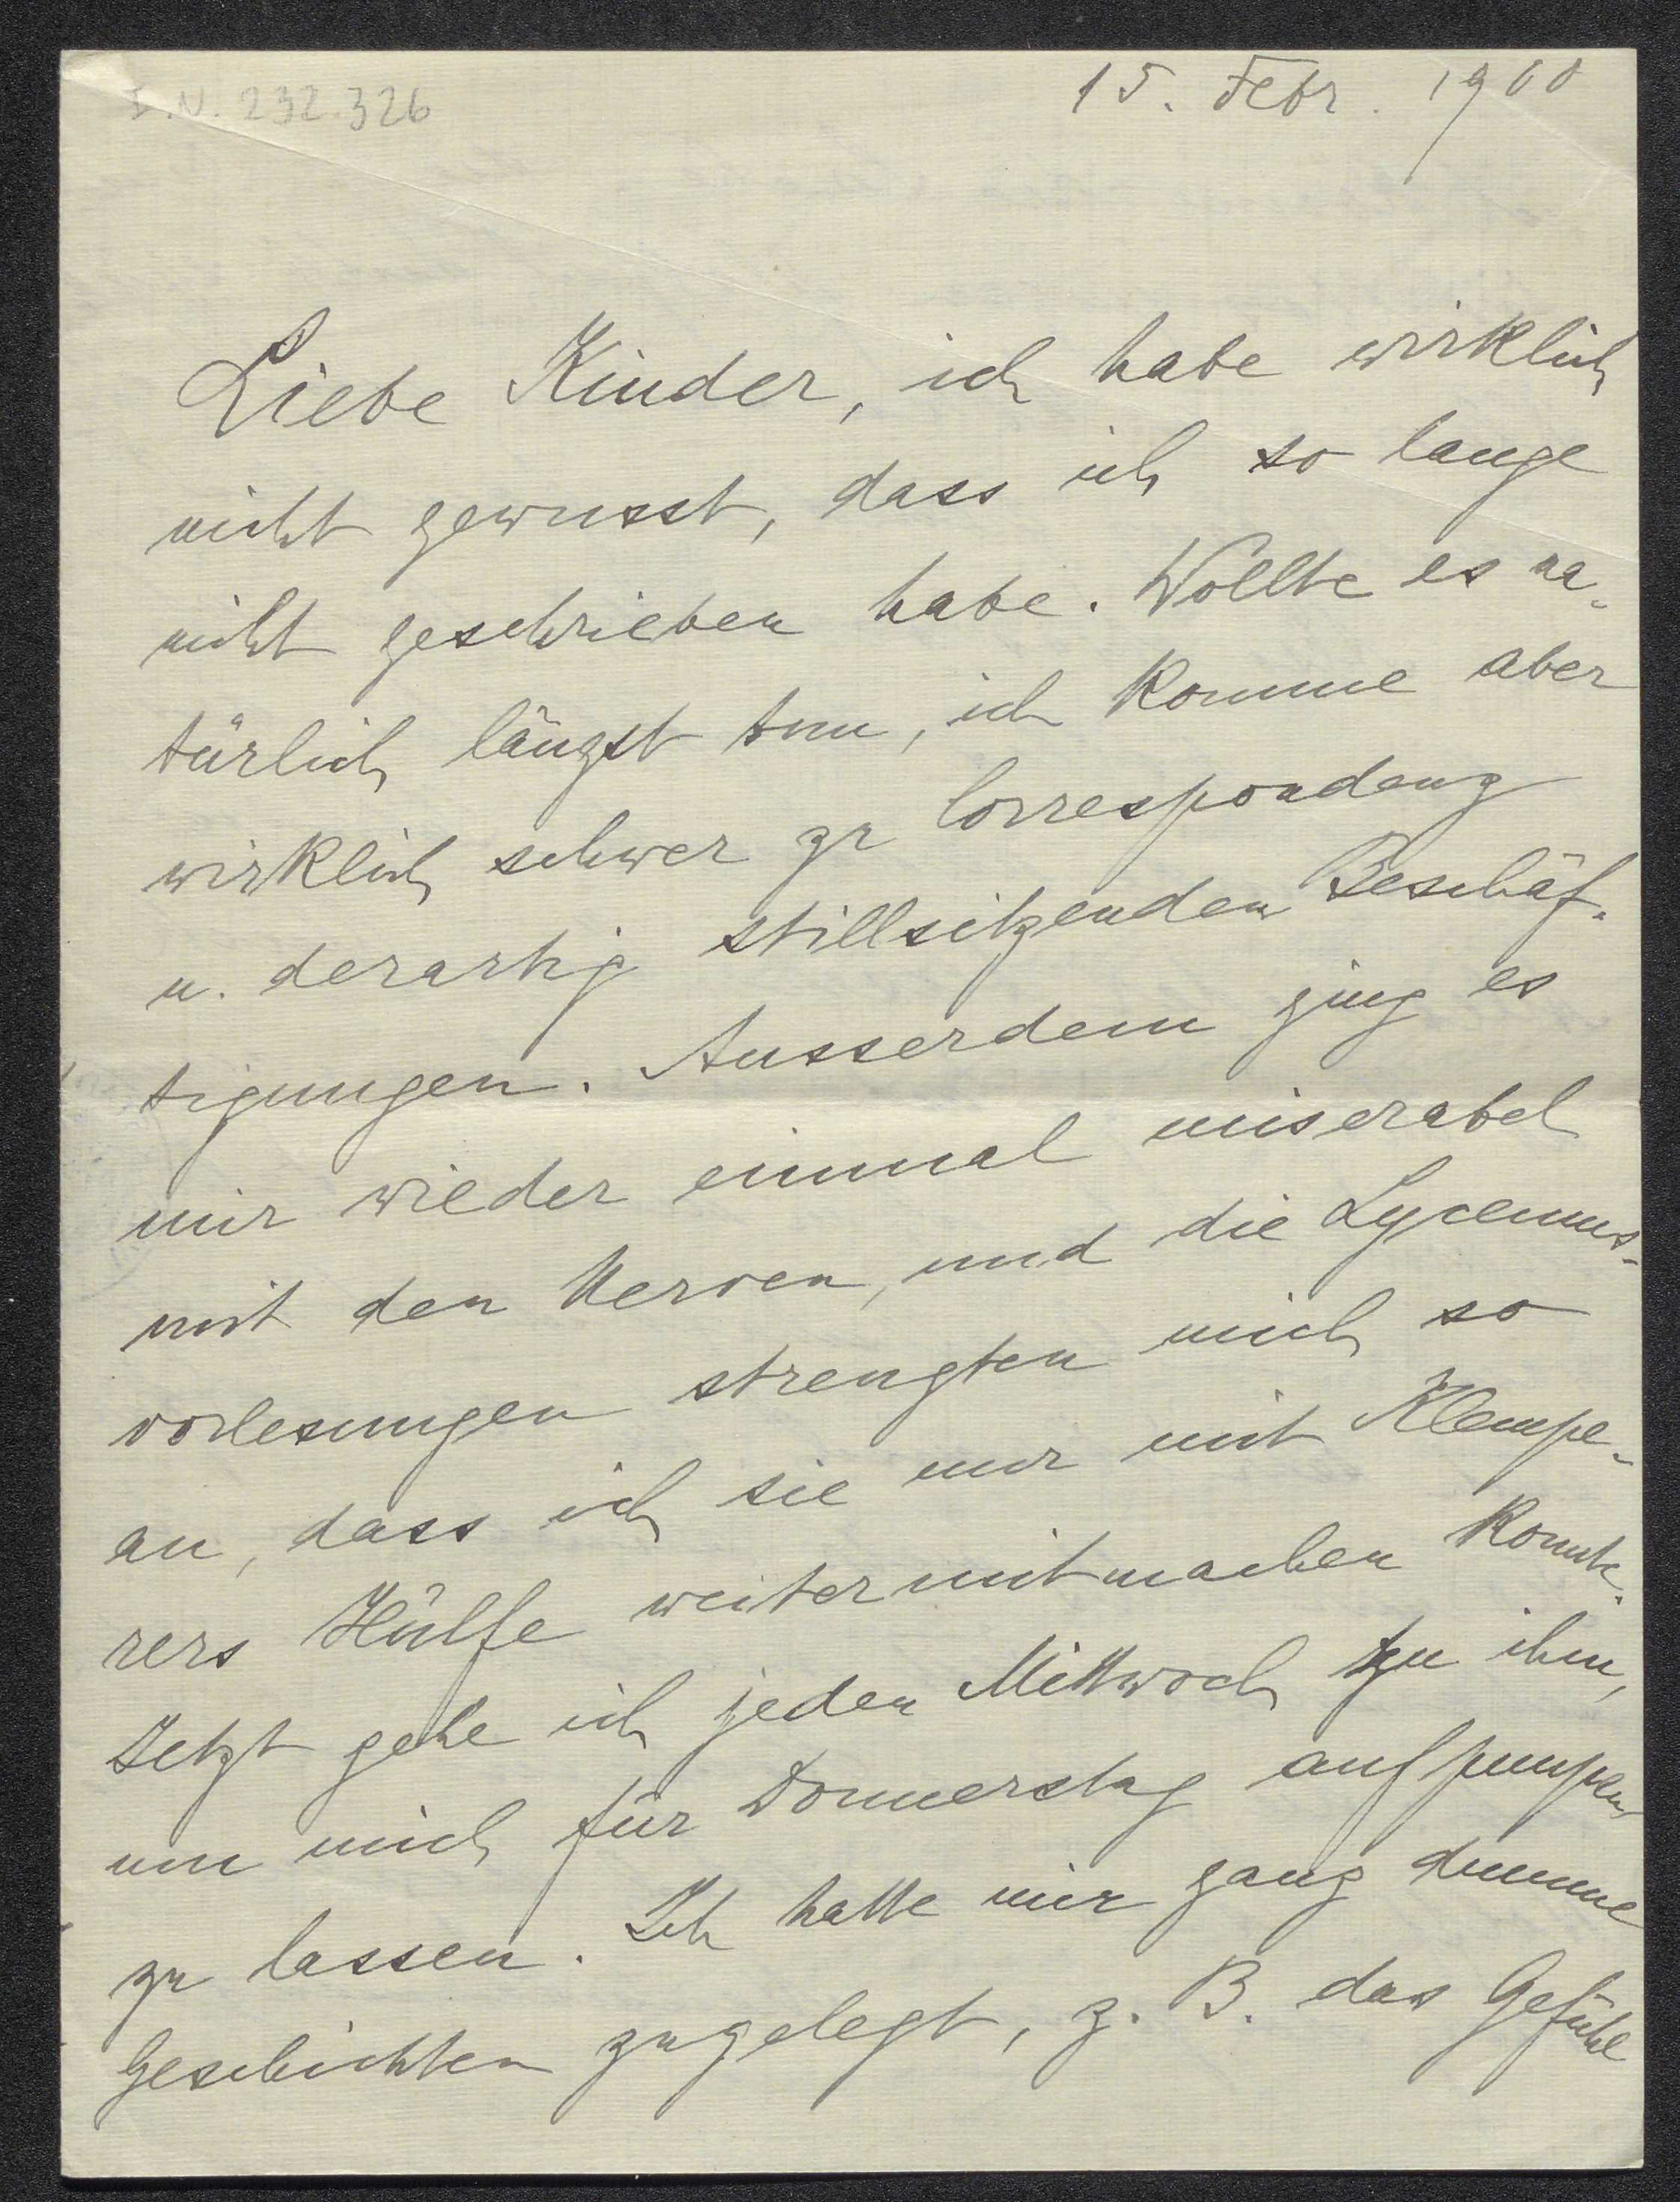 I.N. 232.326
15. Febr. 1900
Liebe Kinder, ich habe wirklich
nicht gewusst, dass ich so lange
nicht geschrieben habe. Wollte es na-
türlich längst tun, ich komme aber
wirklich schwer zu Correspondenz
u. derartig stillsitzenden Beschäf-
tigungen. Ausserdem ging es
mir wieder einmal miserabel
mit den Nerven, und die Lyceums-
vorlesungen strengten mich so
an, dass ich sie nur mit Klempe-
rers Hülfe weiter mitmachen konnte.
Jetzt gehe ich jeden Mittwoch zu ihm,
um mich für Donnerstag aufpumpen
zu lassen. Ich hatte mir ganz dumme
Geschichten zugelegt, z. B. das Gefühl